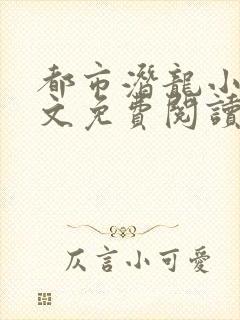 都市潛龍小
文免費閱讀
仄言小可愛